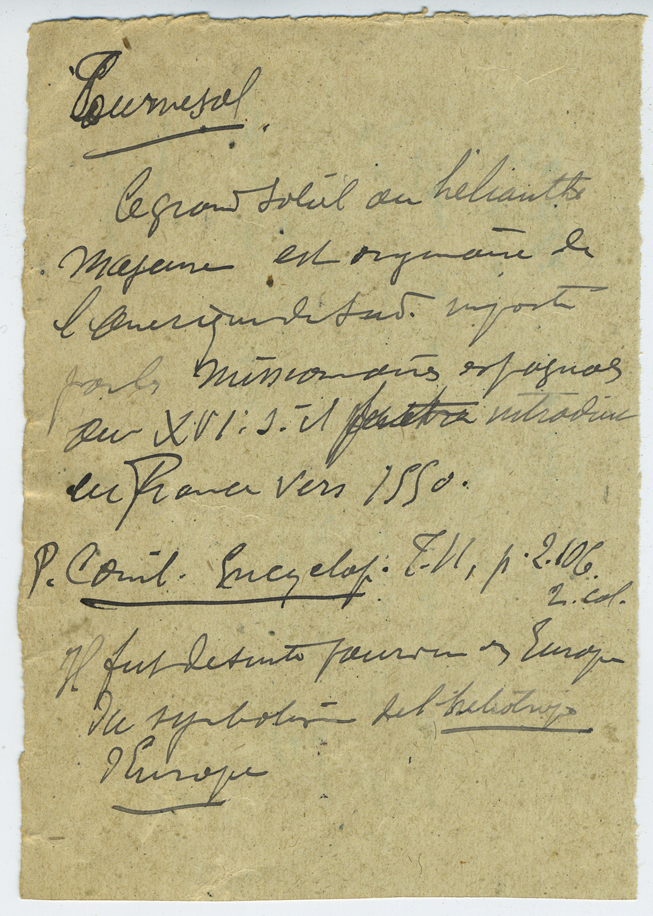 Tournesol.
Le grand soleil ou hélianthe
majeure est originaire de
l'Amérique du Sud. importé
par les missionnaires espagnols
au XVI: s. il introduit
en France vers 1550.
P. Comil. Encyclop. T. II, p. 2.106.
2. col.
Il fut de suite en Europe
du symbolisme de l'héliotrope
d'Europe